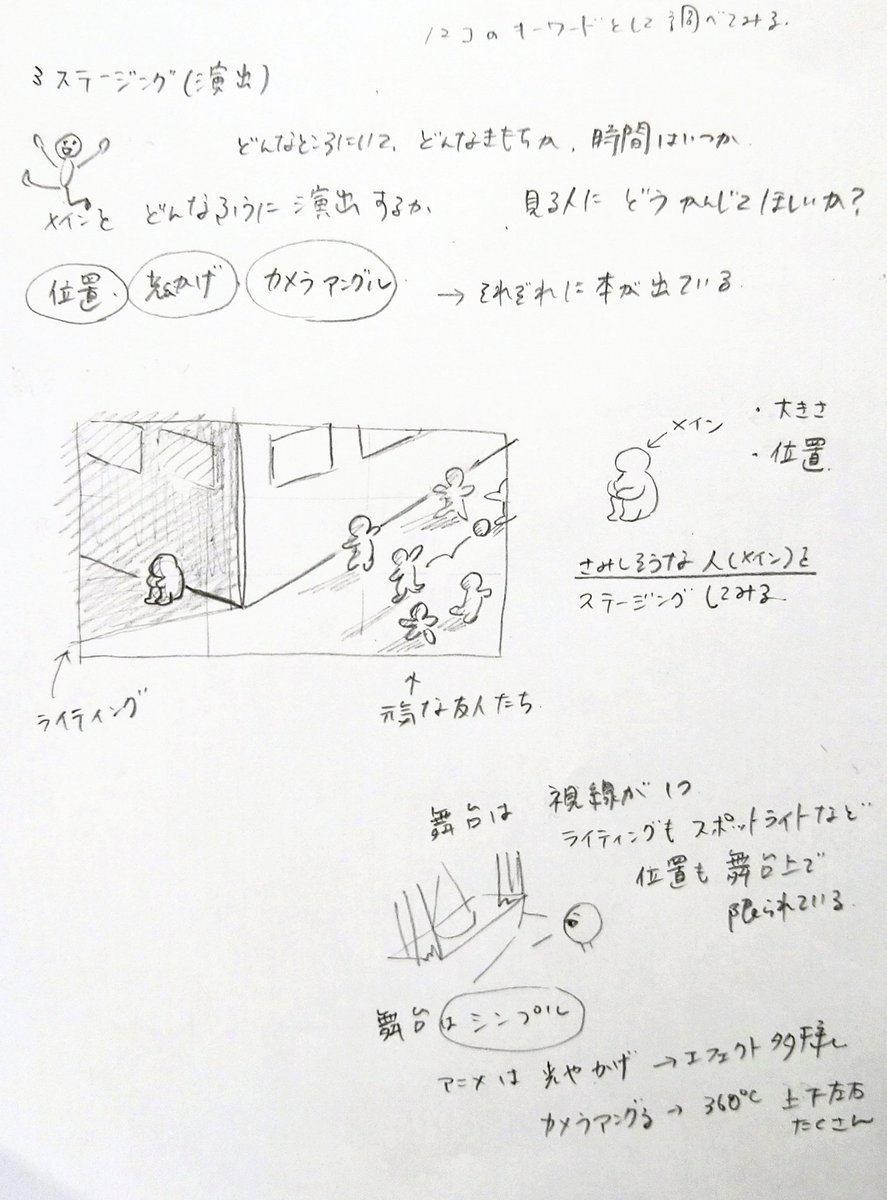 12コのキーワードとして調べてみる.
3 ステージング(演出)
どんなところにいて、どんなきもちか、時間はいつか
メインを どんなふうに 演出するか、 見る人に どう かんじてほしいか?
位置、光とかげ、カメラアングル → それぞれに本が出ている
メイン
・大きさ
・位置
さみしそうな人(メイン)を
ステージングしてみる
ライティング
元気な友人たち.
舞台は 視線が1つ
ライティングも スポットライトなど
位置も 舞台上で
限られている.
舞台はシンプル
アニメは 光や かげ → エフェクト 多様
カメラアングる → 360℃ 上下左右
たくさん